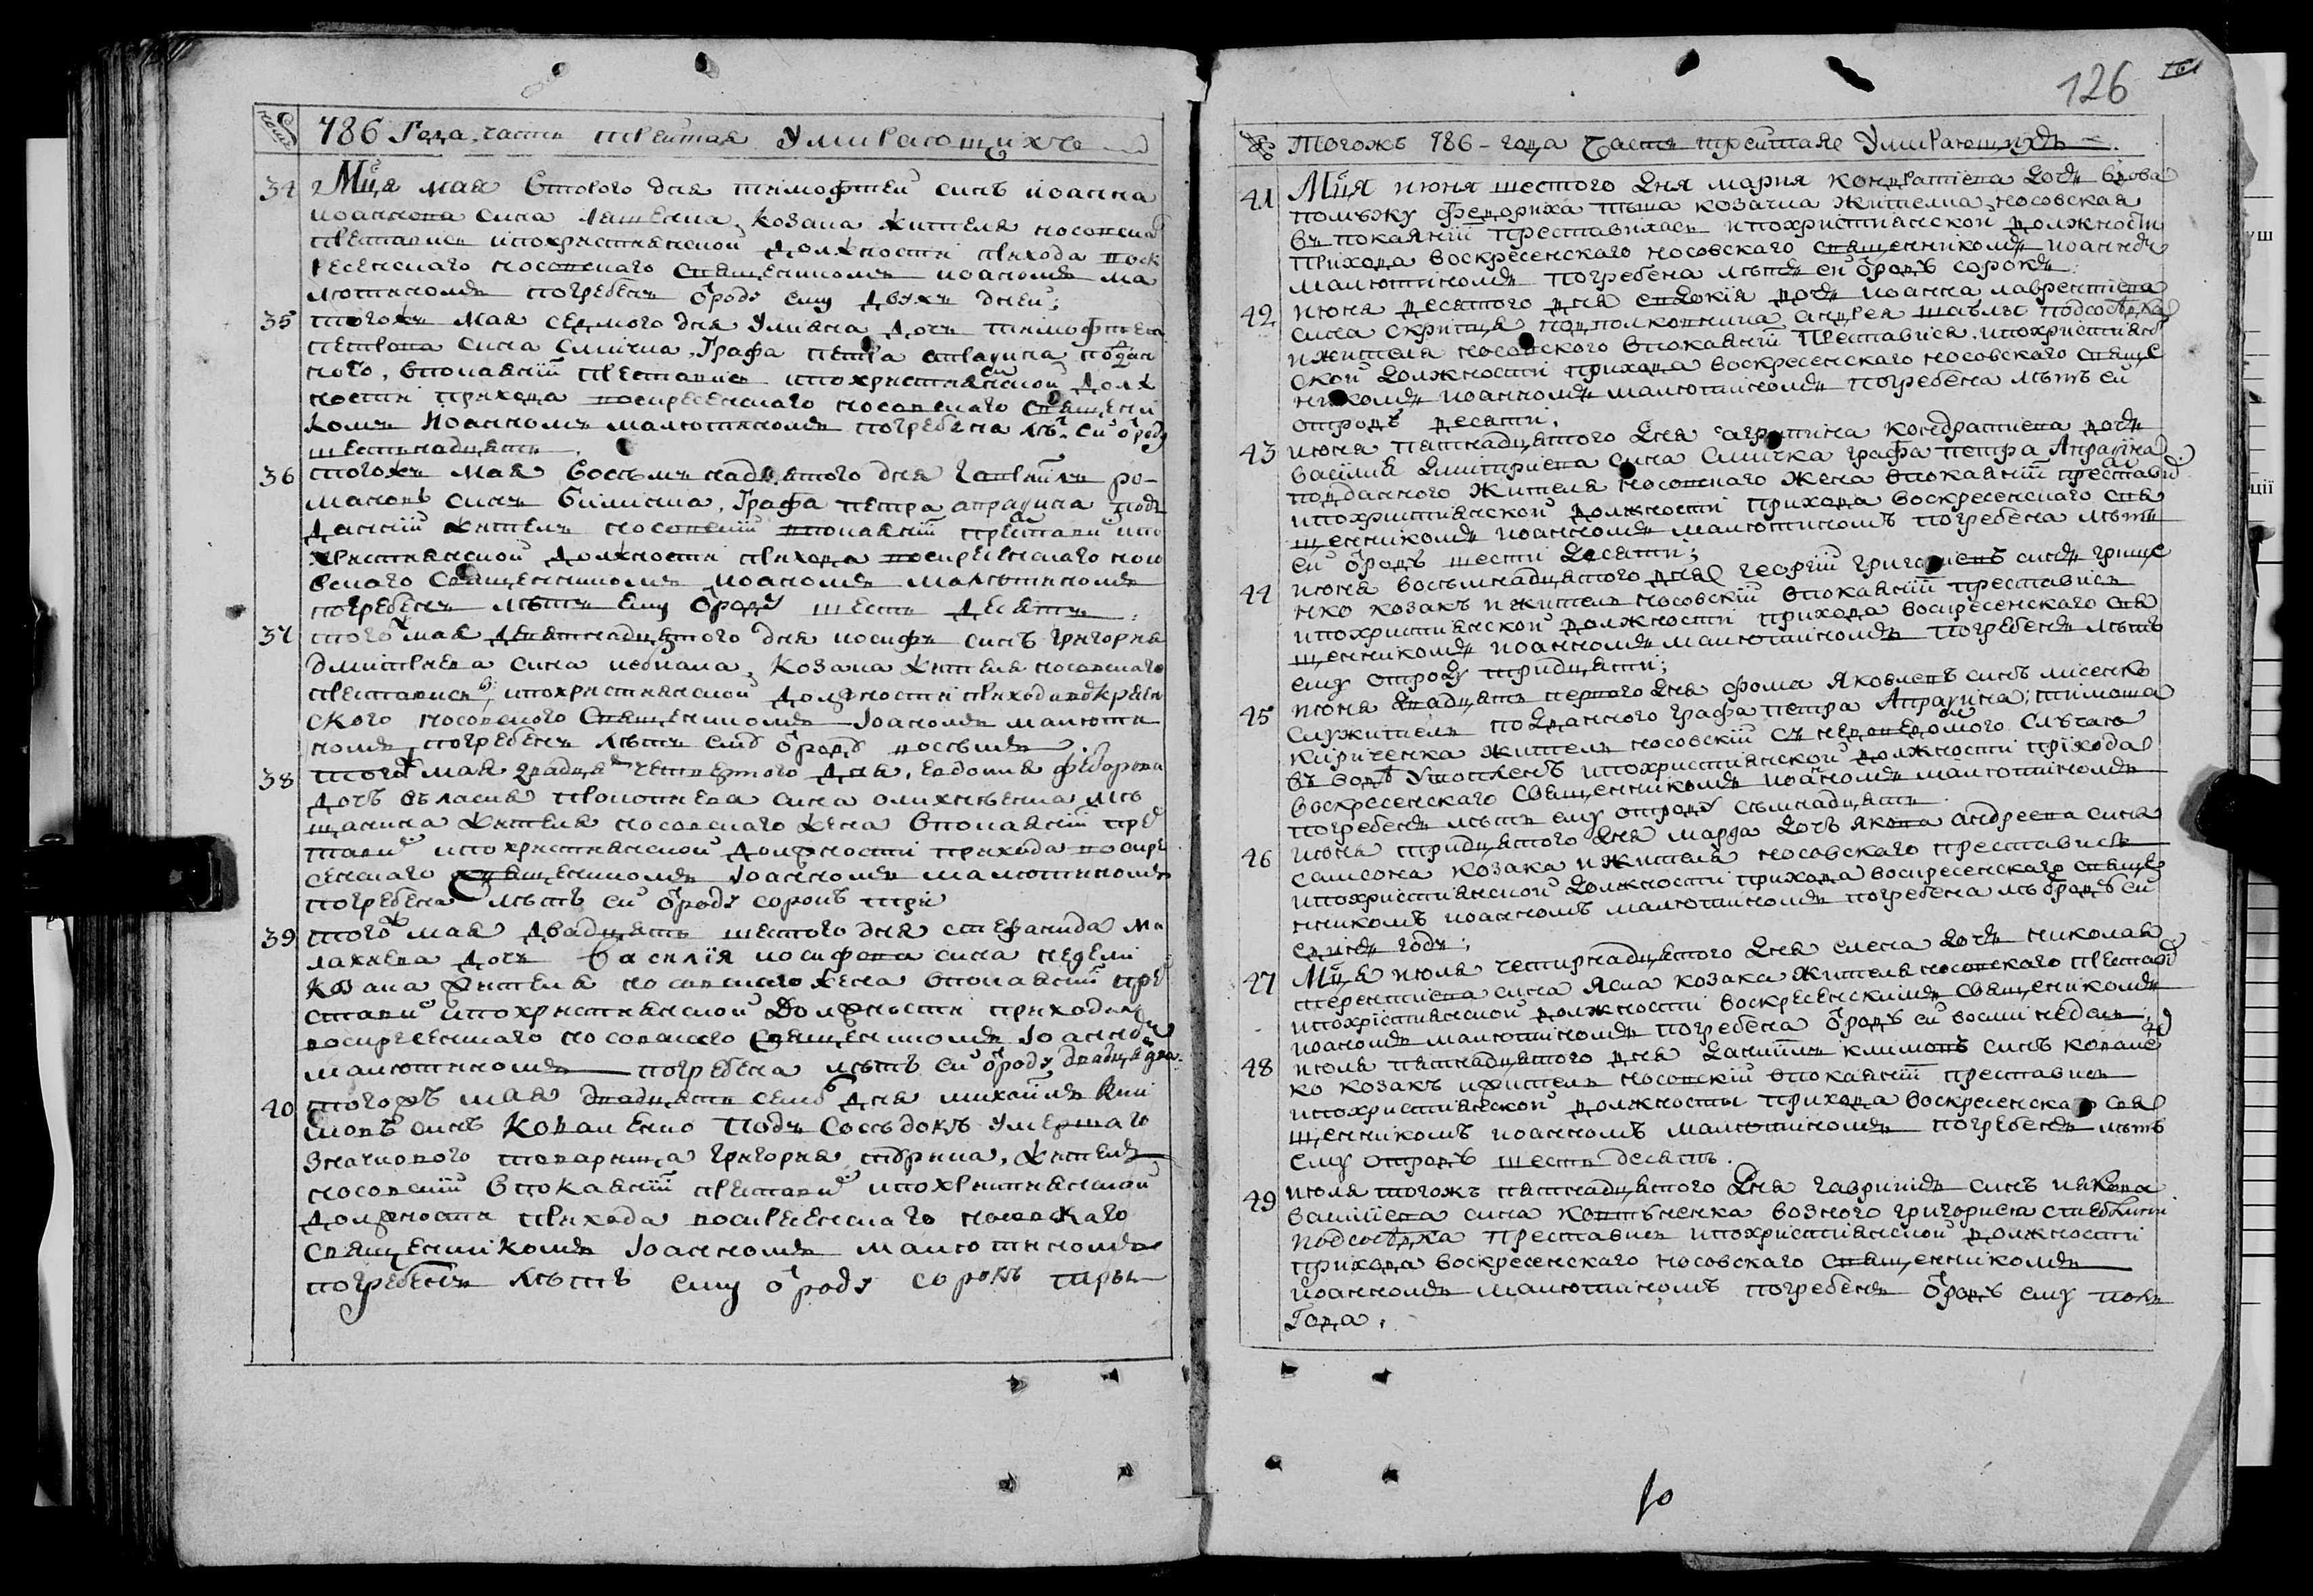 786 Года часть третая Умирающихъ
34 Мца мая второго дня тимофтей синъ иоанна
иоаннова сина козака жителя носовска
преставис ипохристиянской должности прихода воск
ресенского носовского священникомъ иоаномъ ма
лютиномъ погребенъ ѿроду ему двухъ дней;
35 тогожъ мая седмого дня Улияна дочъ тимофтея
петрова сина смичка, Графа петра апраѯина подан
ного, впокаяніи преставис ипохристиянской долж
ности прихода воскресенского носовского священи
комъ Иоанномъ малютиномъ погребена лѣ ей ѿроду
шестнадцять.
36 тогожъ мая восъмънадцятого дня гавріилъ ро-
мановъ синъ билиска, Графа петра апраѯина подъ
данній жителъ носовский впокаяніи престави ипо
християнской должности прихода воскресенского носо
вского священникомъ иоаномъ малютиномъ
погребенъ лѣтъ ему ѿроду шесть десятъ.
37 того мая девятнадцятого дня иосифъ синъ григория
дмитриева сина козака жителя носовского
преставися, ипохристиянской должности прихода воскресен
ского носовского священникомъ Іоаномъ малюти
номъ, погребенъ лѣтъ ему ѿрод восъмъ.
38 того мая двадця четвертого дня, евдокия федорова
дочъ власия прокопиева сина олихвѣенка мѣ
щанина жителя носовского жена впокаяніи пре
стави ипохристиянской должности прихода воскре
сенского священникомъ Іоанномъ малютиномъ
погребена лѣтъ ей ѿроду сорокъ три
39 того мая двадцять шестого дня стефанида ма
лахиева дочъ василія иосифова сина недели
козака жителя носовского жена впокаяніи пре
стави ипохристиянской должности прихода
воскресенского носовского священникомъ Іоанномъ
малютиномъ погребена лѣтъ ей ѿроду двадця два.
40 тогожъ мая двадцять семо дня михаилъ кли
мовъ синъ Коваленко подъ сосѣдокъ умершаго
значкового товарища григория жителъ
носовский впокаяніи престави ипохристиянской
должности прихода воскресенского носовскаго
священникомъ Іоанномъ малютиномъ
погребенъ лѣтъ ему ѿроду сорокъ три
126
Тогожъ 786-года Часть третая Умирающихъ
41 Мця июня шестого дня мария кондратиева дочъ вдова
помѣжу федориха козачка жителка носовская
въ покаяніи преставилась ипохристиянской должности
прихода воскресенского носовского священникомъ иоанномъ
малютиномъ погребена лѣтъ ей ѿродъ сорокъ.
42 июня десятого дня евдокія дочъ иоанна лаврентиева
сина скрипця подполковника андрея шаулы подсосѣдка
ижителя носовского впокаяніи преставися, ипохристиян
ской должности прихода воскресенского носовского свяще
никомъ иоанномъ малютиномъ погребена лѣтъ ей
отродъ десяти.
43 июня пятнадцятого дня агрипина кондратиева дочъ
василия димитриева сина смичка графа петра Апраѯина
подданного жителя носовского жена впокаяніи престави
ипохристиянской должности прихода воскресенского свя
щенникомъ иоанномъ малютиномъ погребена лѣтъ
ей ѿродъ шести десяти;
44 июня восъмнадцятого дня георгій григориевъ синъ грице
нко козакъ ижителъ носовский впокаяніи преставися
ипохристиянской должности прихода воскресенского свя
щенникомъ иоанномъ малютиномъ погребенъ лѣтъ
ему отроду тридцяти;
45 июня двадцять первого дня фома Яковлевъ синъ лисенко
служителъ подданного графа петра Апраѯина; тимоша
кириченка жителъ носовский съ неповедомого слѣчаю
въ водѣ утопленъ ипохристиянской должности прихода
воскресенского священникомъ иоаномъ малютиномъ
погребенъ лѣтъ ему отроду семнадцять.
46 июня тридцятого дня марфа дочъ якова андреева сина
самсона козака ижителя носовского преставися
ипохристиянской должности прихода воскресенского свяще
нникомъ иоанномъ малютиномъ погребена лѣ ѿродъ ей
единъ годъ.
47 Мця июля четирнадцятого дня елена дочъ николая
терентиева сина козака жителя носовского престави
ипохристиянской должности воскресенскимъ священикомъ
иоаномъ малютиномъ погребена ѿродъ ей восми неделъ;
48 июля пятнадцятого дня даніилъ климовъ синъ ковале
ко козакъ ижителъ носовский впокаяніи преставися
ипохристиянской должности прихода воскресенского свя
щенникомъ иоанномъ малютиномъ погребенъ лѣтъ
ему отродъ шесть десятъ.
49 июля тогожъ пятнадцятого дня гавриилъ синъ иякова
василиева сина возного григориея
подсосѣдка преставися ипохристиянской должности
прихода воскресенского носовского священникомъ
иоанномъ малютиномъ погребенъ ѿродъ ему полъ
Года.